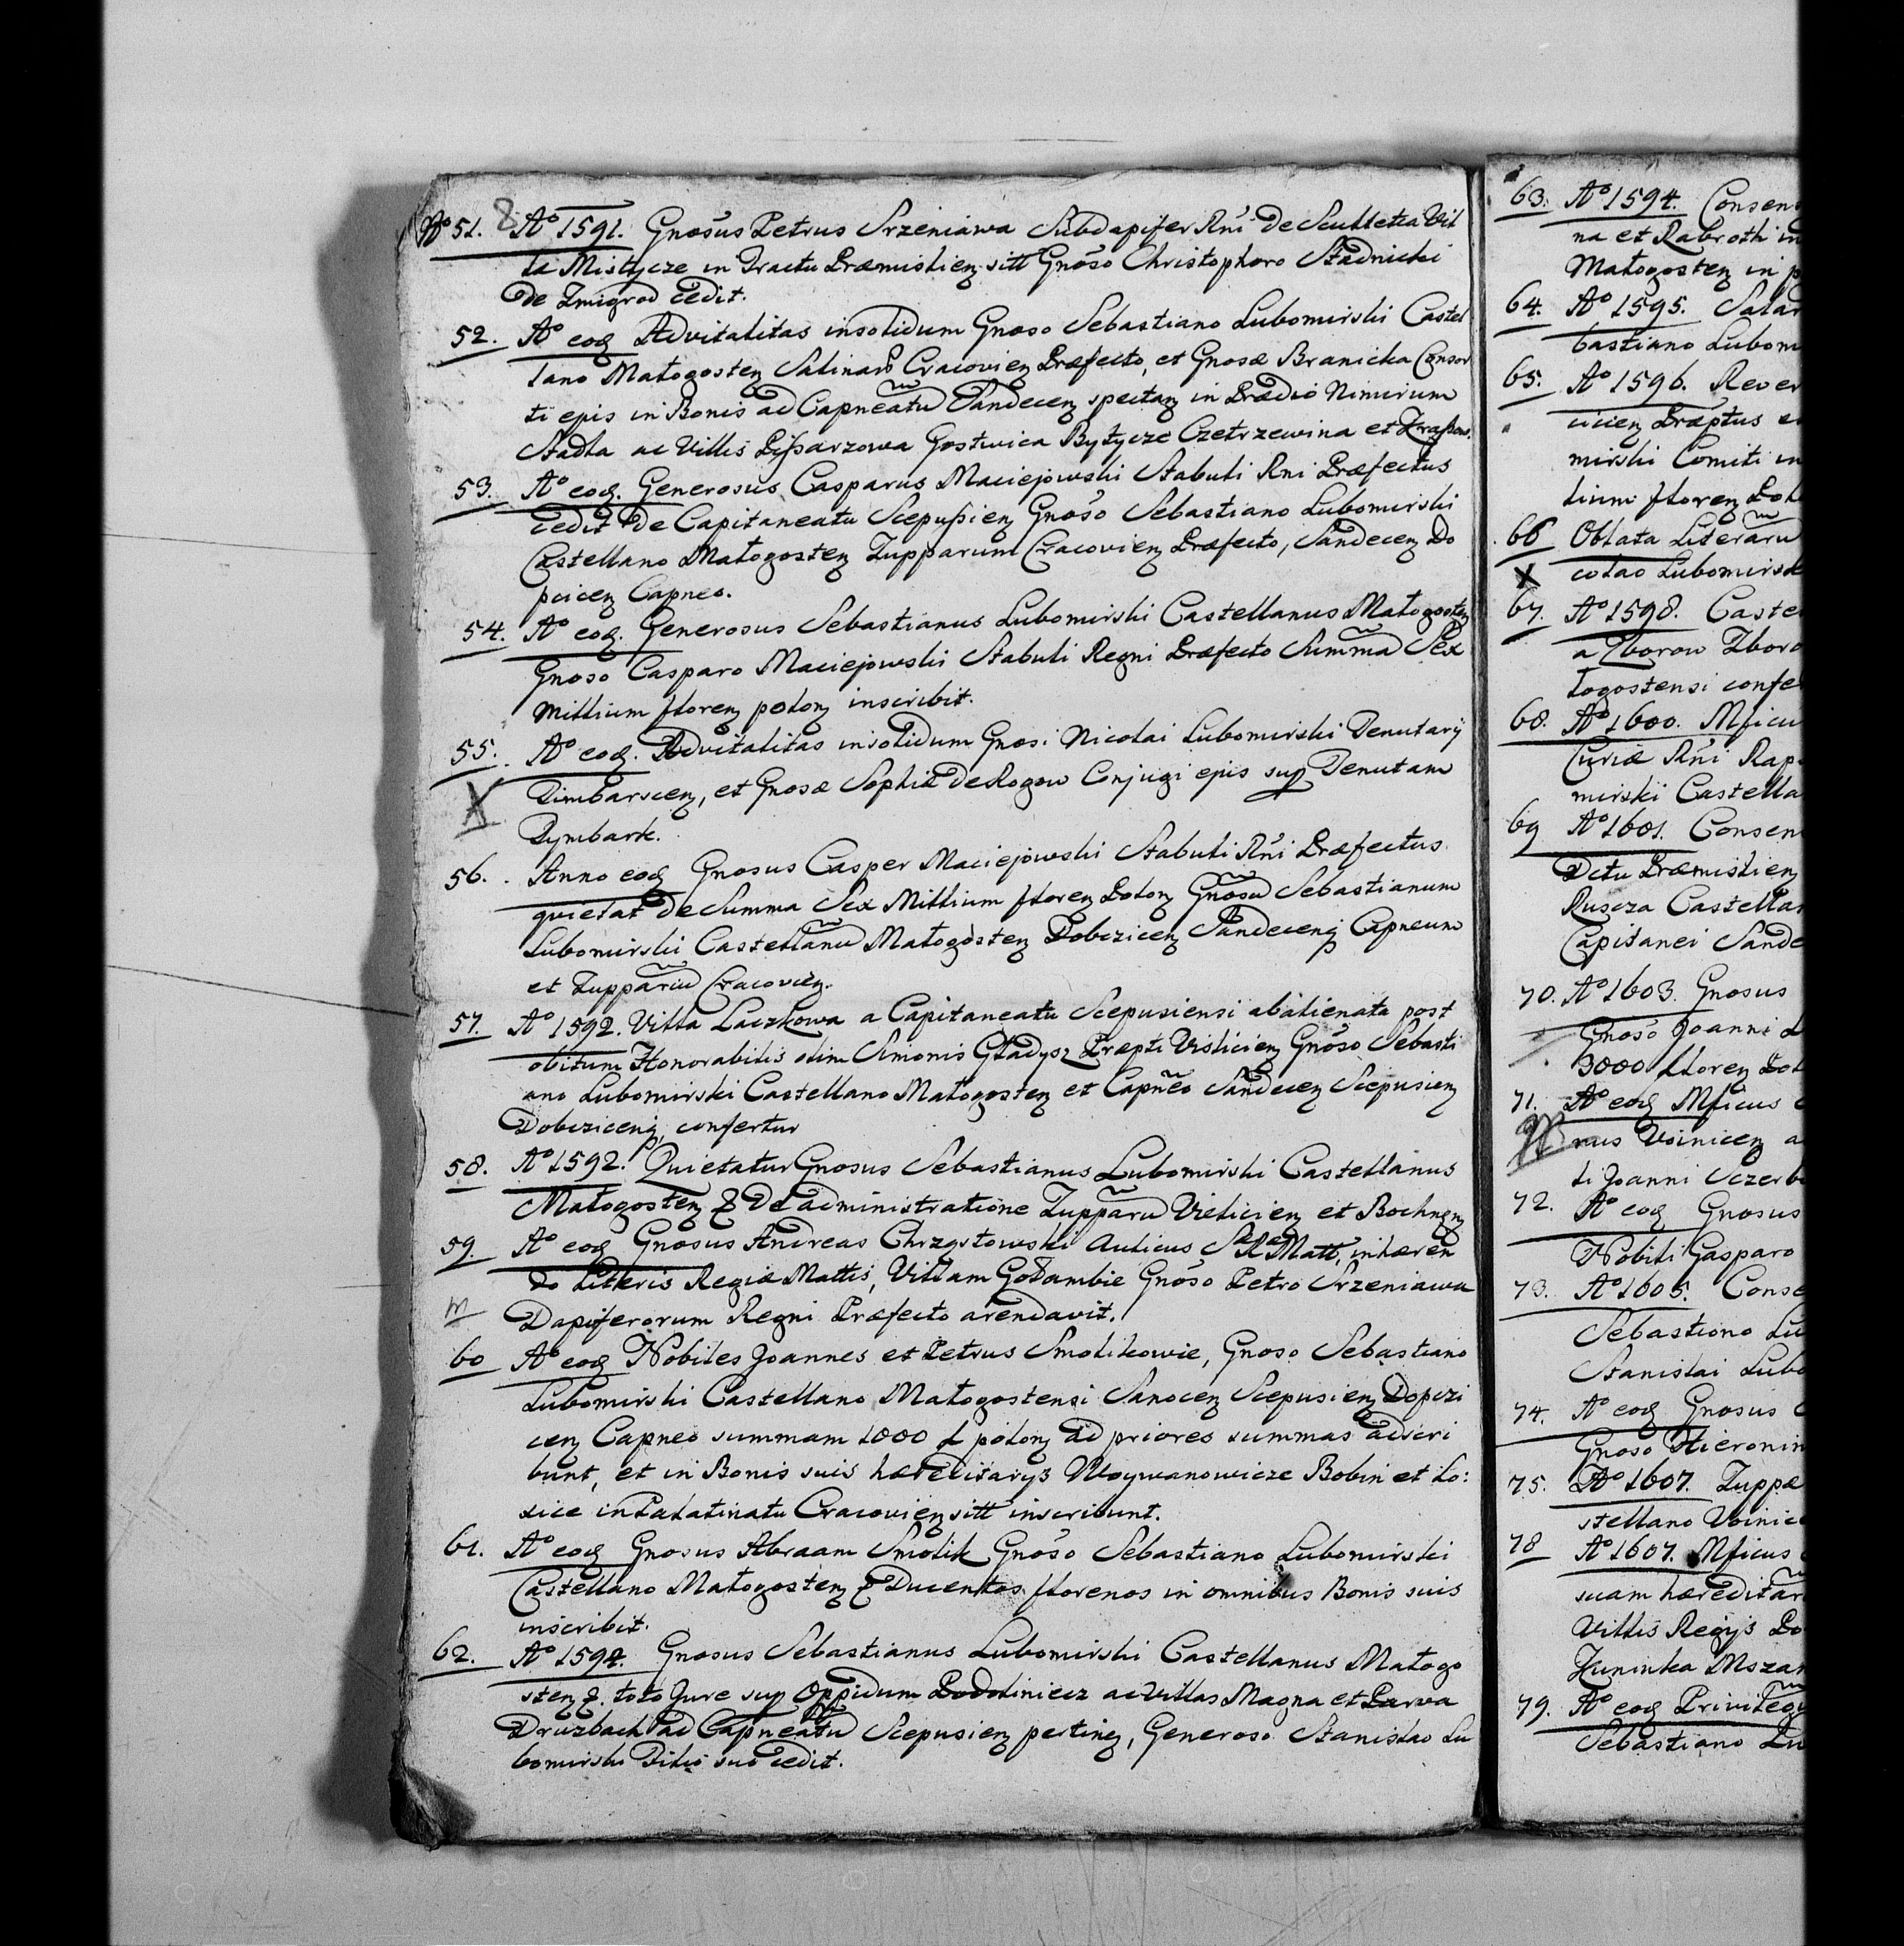 No 51. 8 Ao 1591. Gnosus Petrus Srzeniawa Subdapifer Rni de Scultetia Vil
la Mistycze in Tractu Præmislien sitt Gnoso Christophoro Stadnicki
de Zmigrod cedit.
52. Ao eod Advitalitas insolidum Gnoso Sebastiano Lubomirski Castel
lano Małogosten Salinarū Cracovien Præfecto, et Gnosæ Branicka Consor
ti epis in Bonis ad Capneatū Sandecen spectan in Prædio Nimirum
Stadła ac Villis Pissarzowa Gostwica Bytycze Czetrzewina et
53. Ao eod. Generosus Casparus Maciejowski Stabuli Rni Præfectus
cedit de Capitaneatu Scepussien Gnoso Sebastiano Lubomirski
Castellano Małogosten Zupparum Cracovien Præfecto, Sandecen Do
pcicen Capneo.
54. Ao eod. Generosus Sebastianus Lubomirski Castellanus Małogosten
Gnoso Casparo Maciejowski Stabuli Regni Præfecto Summā Sex
Millium floren polon inscribit.
55. Ao eod. Advitalitas insolidum Gnosi Nicolai Lubomirski Tenutarij
X Timbarscen, et Gnosæ Sophiæ de Rogow Conjugi epis sup Tenutam
Tymbark.
56. Anno eod Gnosus Casper Maciejowski Stabuli Rni Præfectus
quietat de Summa Sex Millium floren Polon Gnosū Sebastianum
Lubomirski Castellanū Małogosten Dobczicen Sandecenq Capneum
et Zuppariū Cracovien.
57. Ao 1592. Villa Laczkowa a Capitaneatu Scepusiensi abalienata post
obitum Honorabilis olim Simonis Gładysz Præpti Vislicien Gnoso Sebasti
ano Lubomirski Castellano Małogosten et Capneo Sandecen Scepusien
Dobcziceng, confertur
58. Ao 1592. Quietatur Gnosus Sebastianus Lubomirski Castellanus
Małogosten & de administratione Zupparū Vielicien et Bochnen
59. Ao eod Gnosus Andreas Chrząstowski Aulicus S R Matt, inhæren
do Litteris Regiæ Mattis, Villam Gołambie Gnoso Petro Srzeniawa
Dapiferorum Regni Præfecto arendavit.
60 Ao eod Nobiles Joannes et Petrus Smolikowie, Gnoso Sebastiano
Lubomirski Castellano Małogostensi Sanocen Scepusien Dopczi
cen Capneo summam 1000 f polon ad priores summas adscri
bunt, et in Bonis suis hæreditarijs Woywanowicze Bobin et Lo:
sice in Palatinatu Cracovien sitt inscribunt.
61. Ao eod Gnosus Abraam Smolik Gnoso Sebastiano Lubomirski
Castellano Małogosten & Ducentos florenos in omnibus Bonis suis
inscribit.
62. Ao 1594. Gnosus Sebastianus Lubomirski Castellanus Małogo
sten &. toto Jure sup Oppidum Podoliniecz ac Villas Magna et Parva
Druzbach ad Capneatū Scepusien pertinen, Generoso Stanislao Lu
bomirski Filio suo cedit.
63. Ao 1594. Consens
na et Rabroth in
Małogosten in p
64. Ao 1595. Salar
bastiano Lubom
65. Ao 1596. Rever
cicien Præptus e
mirski Comiti in
lium floren Pol
66 Oblata Literarū
X colao Lubomirsk
67. Ao 1598. Caste
a Zborow Zboro
łogostensi confe
68. Ao 1600. Mficu
Curiæ Rni Rap
mirski Castella
69 Ao 1601. Consen
Dctu Præmislien
Ruscza Castellan
Capitanei Sande
70. Ao 1603. Gnosus
Gnoso Joanni L
3000 floren Pol
71. Ao eod Mficus
nus Voinicen a
li Joanni Sczerb
72. Ao eod Gnosus
Nobili Gasparo
73. Ao 1605. Conse
Sebastiono Lu
Stanislai Lubo
74. Ao eod Gnosus
Gnoso Hieronim
75. Ao 1607. Zuppæ
stellano Voinic
78 Ao 1607. Mficus
suam hæreditar
Villis Regijs Po
Huninka Mszan
79. Ao eod Privileg
Sebastiano Lu